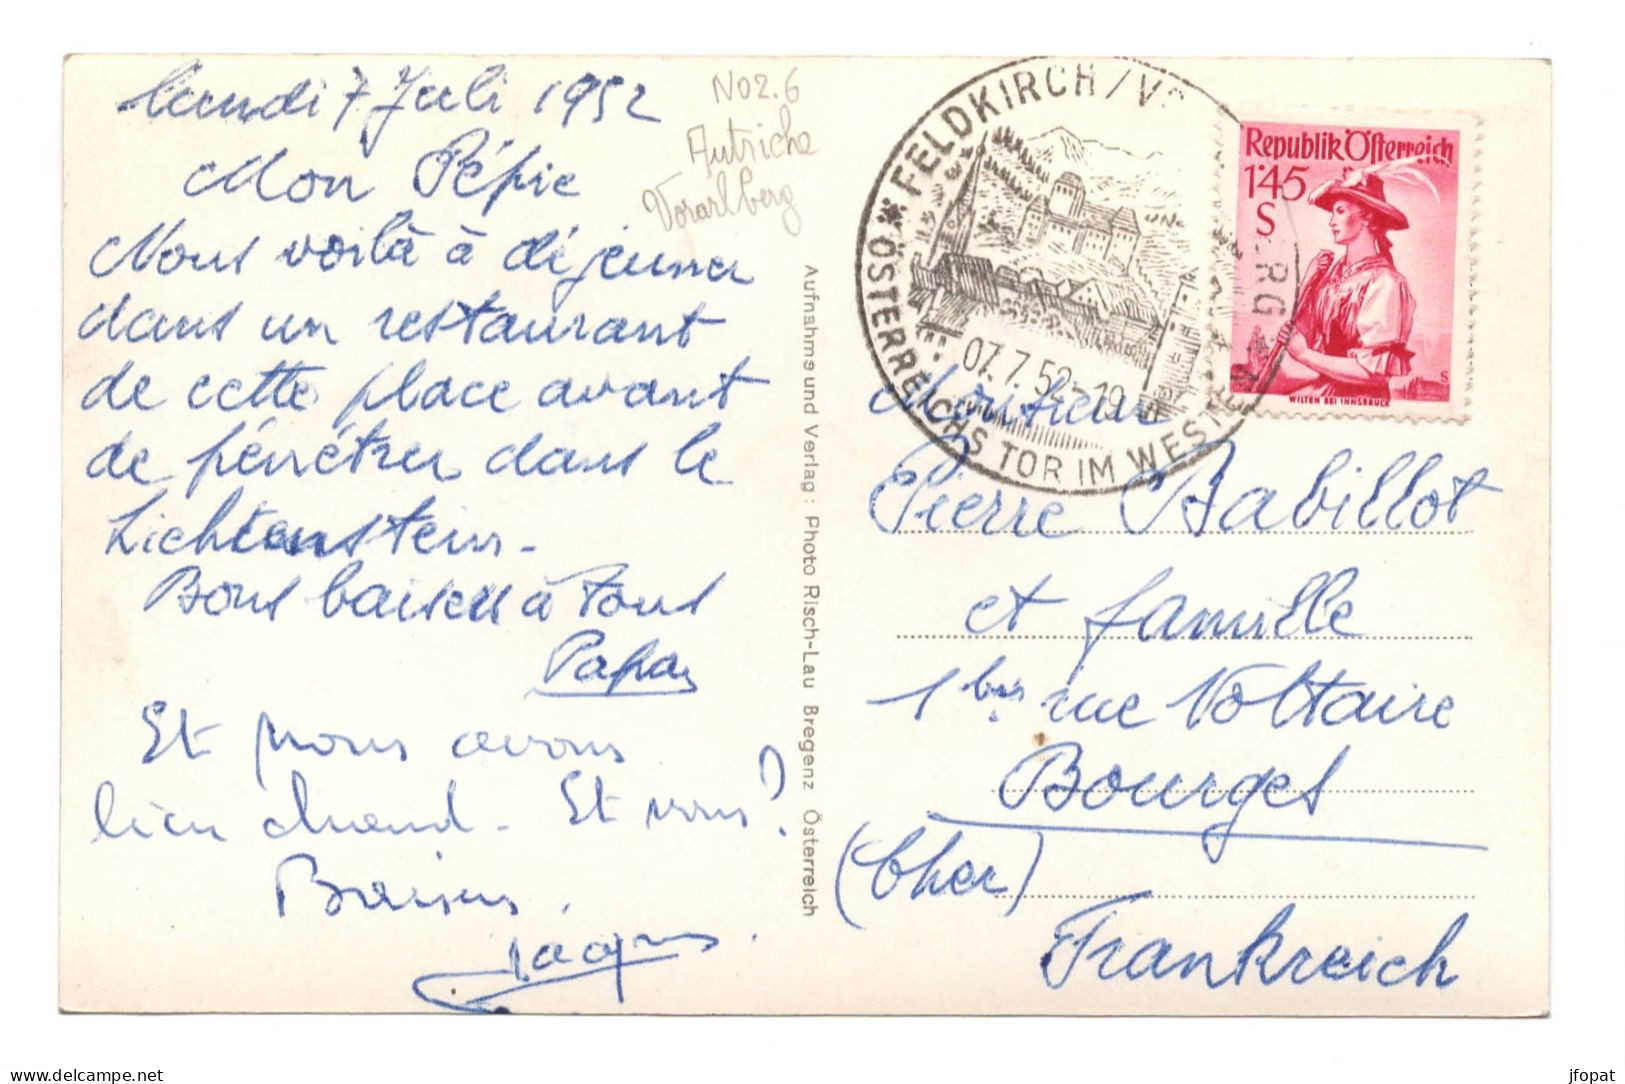 Lundi 7 Juli 1952
Mon Pépie
Nous voilà à déjeuner
dans un restaurant
de cette place avant
de pénétrer dans le
Lichtenstein -
Bons baisers à tous
Papa
Et nous avons
bien chaud - Et vous?
Baisers.
Jacques.
No2.6
Autriche
Vorarlberg
Aufnahme und Verlag: Photo Risch-Lau Bregenz Österreich
FELDKIRCH / V ERG
ÖSTERREICHS TOR IM WESTEN
07.7.52-19
Republik Österreich
1'45
S
WILTEN BEI INNSBRUCK
S
Monsieur
Pierre Babillot
et famille
1 bis rue Voltaire
Bourges
(Cher)
Frankreich
delcampe.net
jfopat